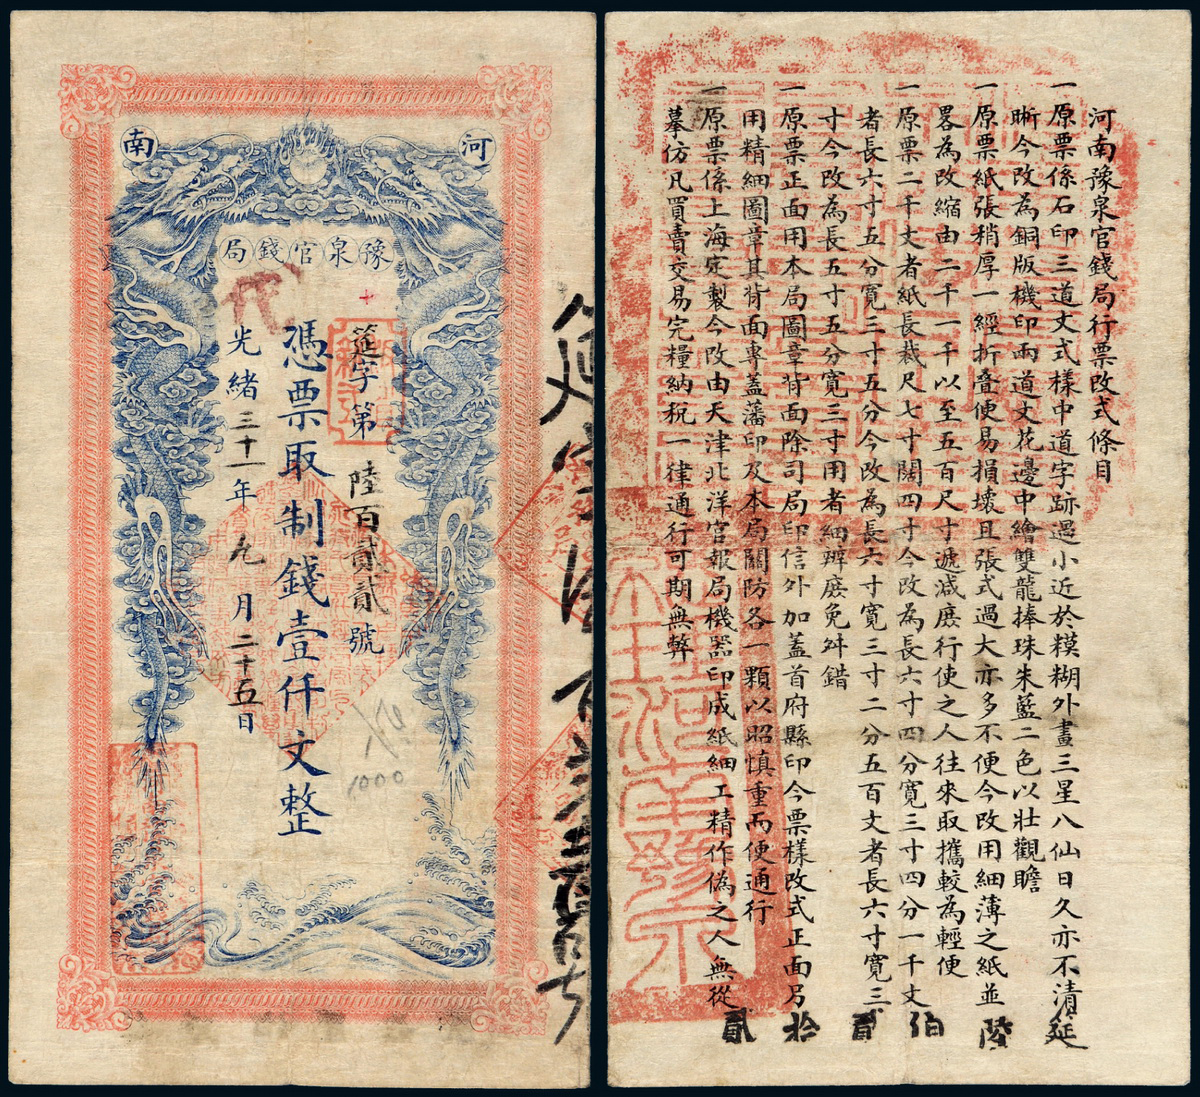 河南
豫泉官錢局
筵字第陸百貳貳號
憑票取制錢壹仟文整
光緒三十一年九月二十五日
1000
河南豫泉官錢局行票改式條目
一原票係石印三道文式樣中道字跡過小近於糢糊外畫三星八仙日久亦不清
晰今改為銅版機印兩道文花邊中繪雙龍捧珠朱藍二色以壯觀瞻
一原票紙張稍厚一經折疊便易損壞且張式過大亦多不便今改用細薄之紙並
畧為改縮由二千一千以至五百尺寸遞減庶行使之人往來取攜較為輕便
一原票二千文者紙長裁尺七寸闊四寸今改為長六寸四分寬三寸四分一千文
者長六寸五分寬三寸五分今改為長六寸寬三寸二分五百文者長六寸寬三
寸今改為長五寸五分寬三寸用者細辨庶免舛錯
一原票正面用本局圖章背面除司局印信外加蓋首府縣印今票樣改式正面另
用精細圖章其背面專蓋藩印及本局關防各一顆以昭慎重而便通行
一原票係上海定製今改由天津北洋官報局機器印成紙細工精作偽之人無從
摹仿凡買賣交易完糧納稅一律通行可期無弊
延陸伯貳拾貳